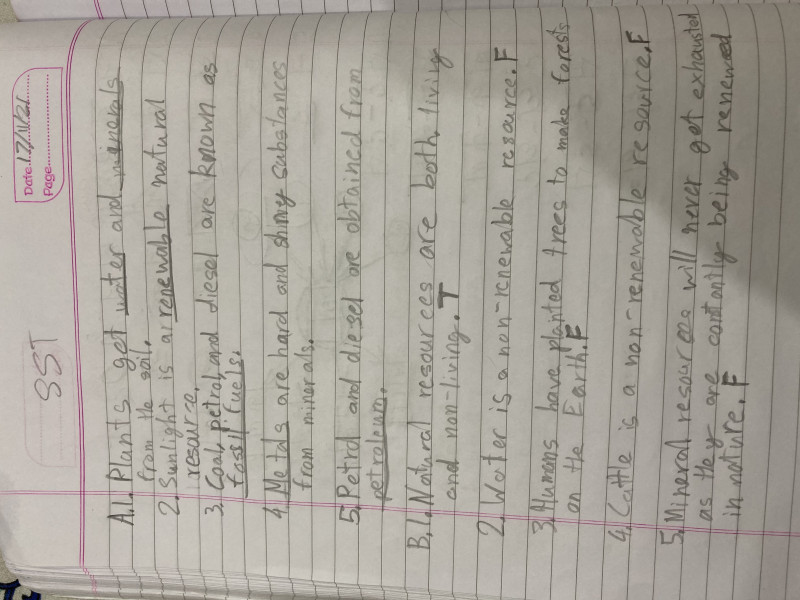 SST
Date 17/11/21
Page
A.1. Plants get water and minerals
from the soil.
2. Sunlight is a renewable natural
resource.
3. Coal, petrol, and diesel are known as
fossil fuels.
4. Metals are hard and shiny substances
from minerals.
5. Petrol and diesel are obtained from
petroleum.
B.1. Natural resources are both living
and non-living. T
2. Water is a non-renewable resource. F
3. Humans have planted trees to make forests
on the Earth. F
4. Cattle is a non-renewable resource. F
5. Mineral resources will never get exhausted
as they are constantly being renewed
in nature. F